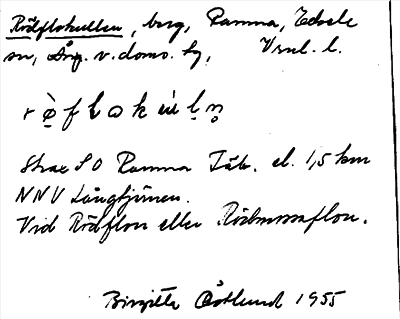 Rödflokullen, berg, Ramna, Edsele
sn, Ång. v. doms. hg, Vnl. l.
Strax SO Ramna Fäb. el. 1,5 km
NNV Långtjärnen.
Vid Rödflon eller Rödmossaflon.
Birgitta Östlund 1955